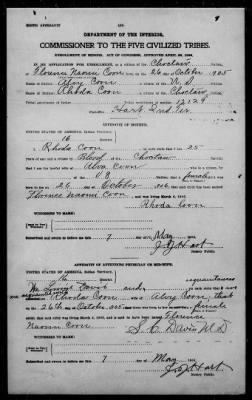 BIRTH AFFIDAVIT
DEPARTMENT OF THE INTERIOR,
COMMISSIONER TO THE FIVE CIVILIZED TRIBES.
ENROLLMENT OF MINORS, ACT OF CONGRESS, APPROVED APRIL 26, 1906.
IN RE APPLICATION FOR ENROLLMENT, as a citizen of the Choctaw Nation,
of Florence Naomi Coon, born on the 26 day of October, 1905
Name of Father: Alvy Coon a citizen of the U S Nation.
Name of Mother: Rhoda Coon a citizen of the Choctaw Nation.
Tribal enrollment of mother
Postoffice Hart Ind Ter
AFFIDAVIT OF MOTHER.
UNITED STATES OF AMERICA, Indian Territory,
16
I, Rhoda Coon, on oath state that I am 25
years of age and a citizen by Blood, of the Choctaw Nation;
Alva Coon, who is a citizen
of the U S Nation; that a female child was
born to me on 26 day of October
Florence Naomi Coon, and was living March 4, 1906.
Rhoda Coon
WITNESSES TO MARK:
Subscribed and sworn to before me this 7 day of May, 1906.
J J Hart
Notary Public.
AFFIDAVIT OF ATTENDING PHYSICIAN OR MID-WIFE.
UNITED STATES OF AMERICA, Indian Territory,
Rhoda Coon, wife of Alvy Coon, that
the 26th day of October
and was living March 4, 1906, and is said to have been named Florence
Naomi Coon
S. C. Davis M.D
WITNESSES TO MARK:
Subscribed and sworn to before me this 7 day of May, 1906.
J J Hart
Notary Public.